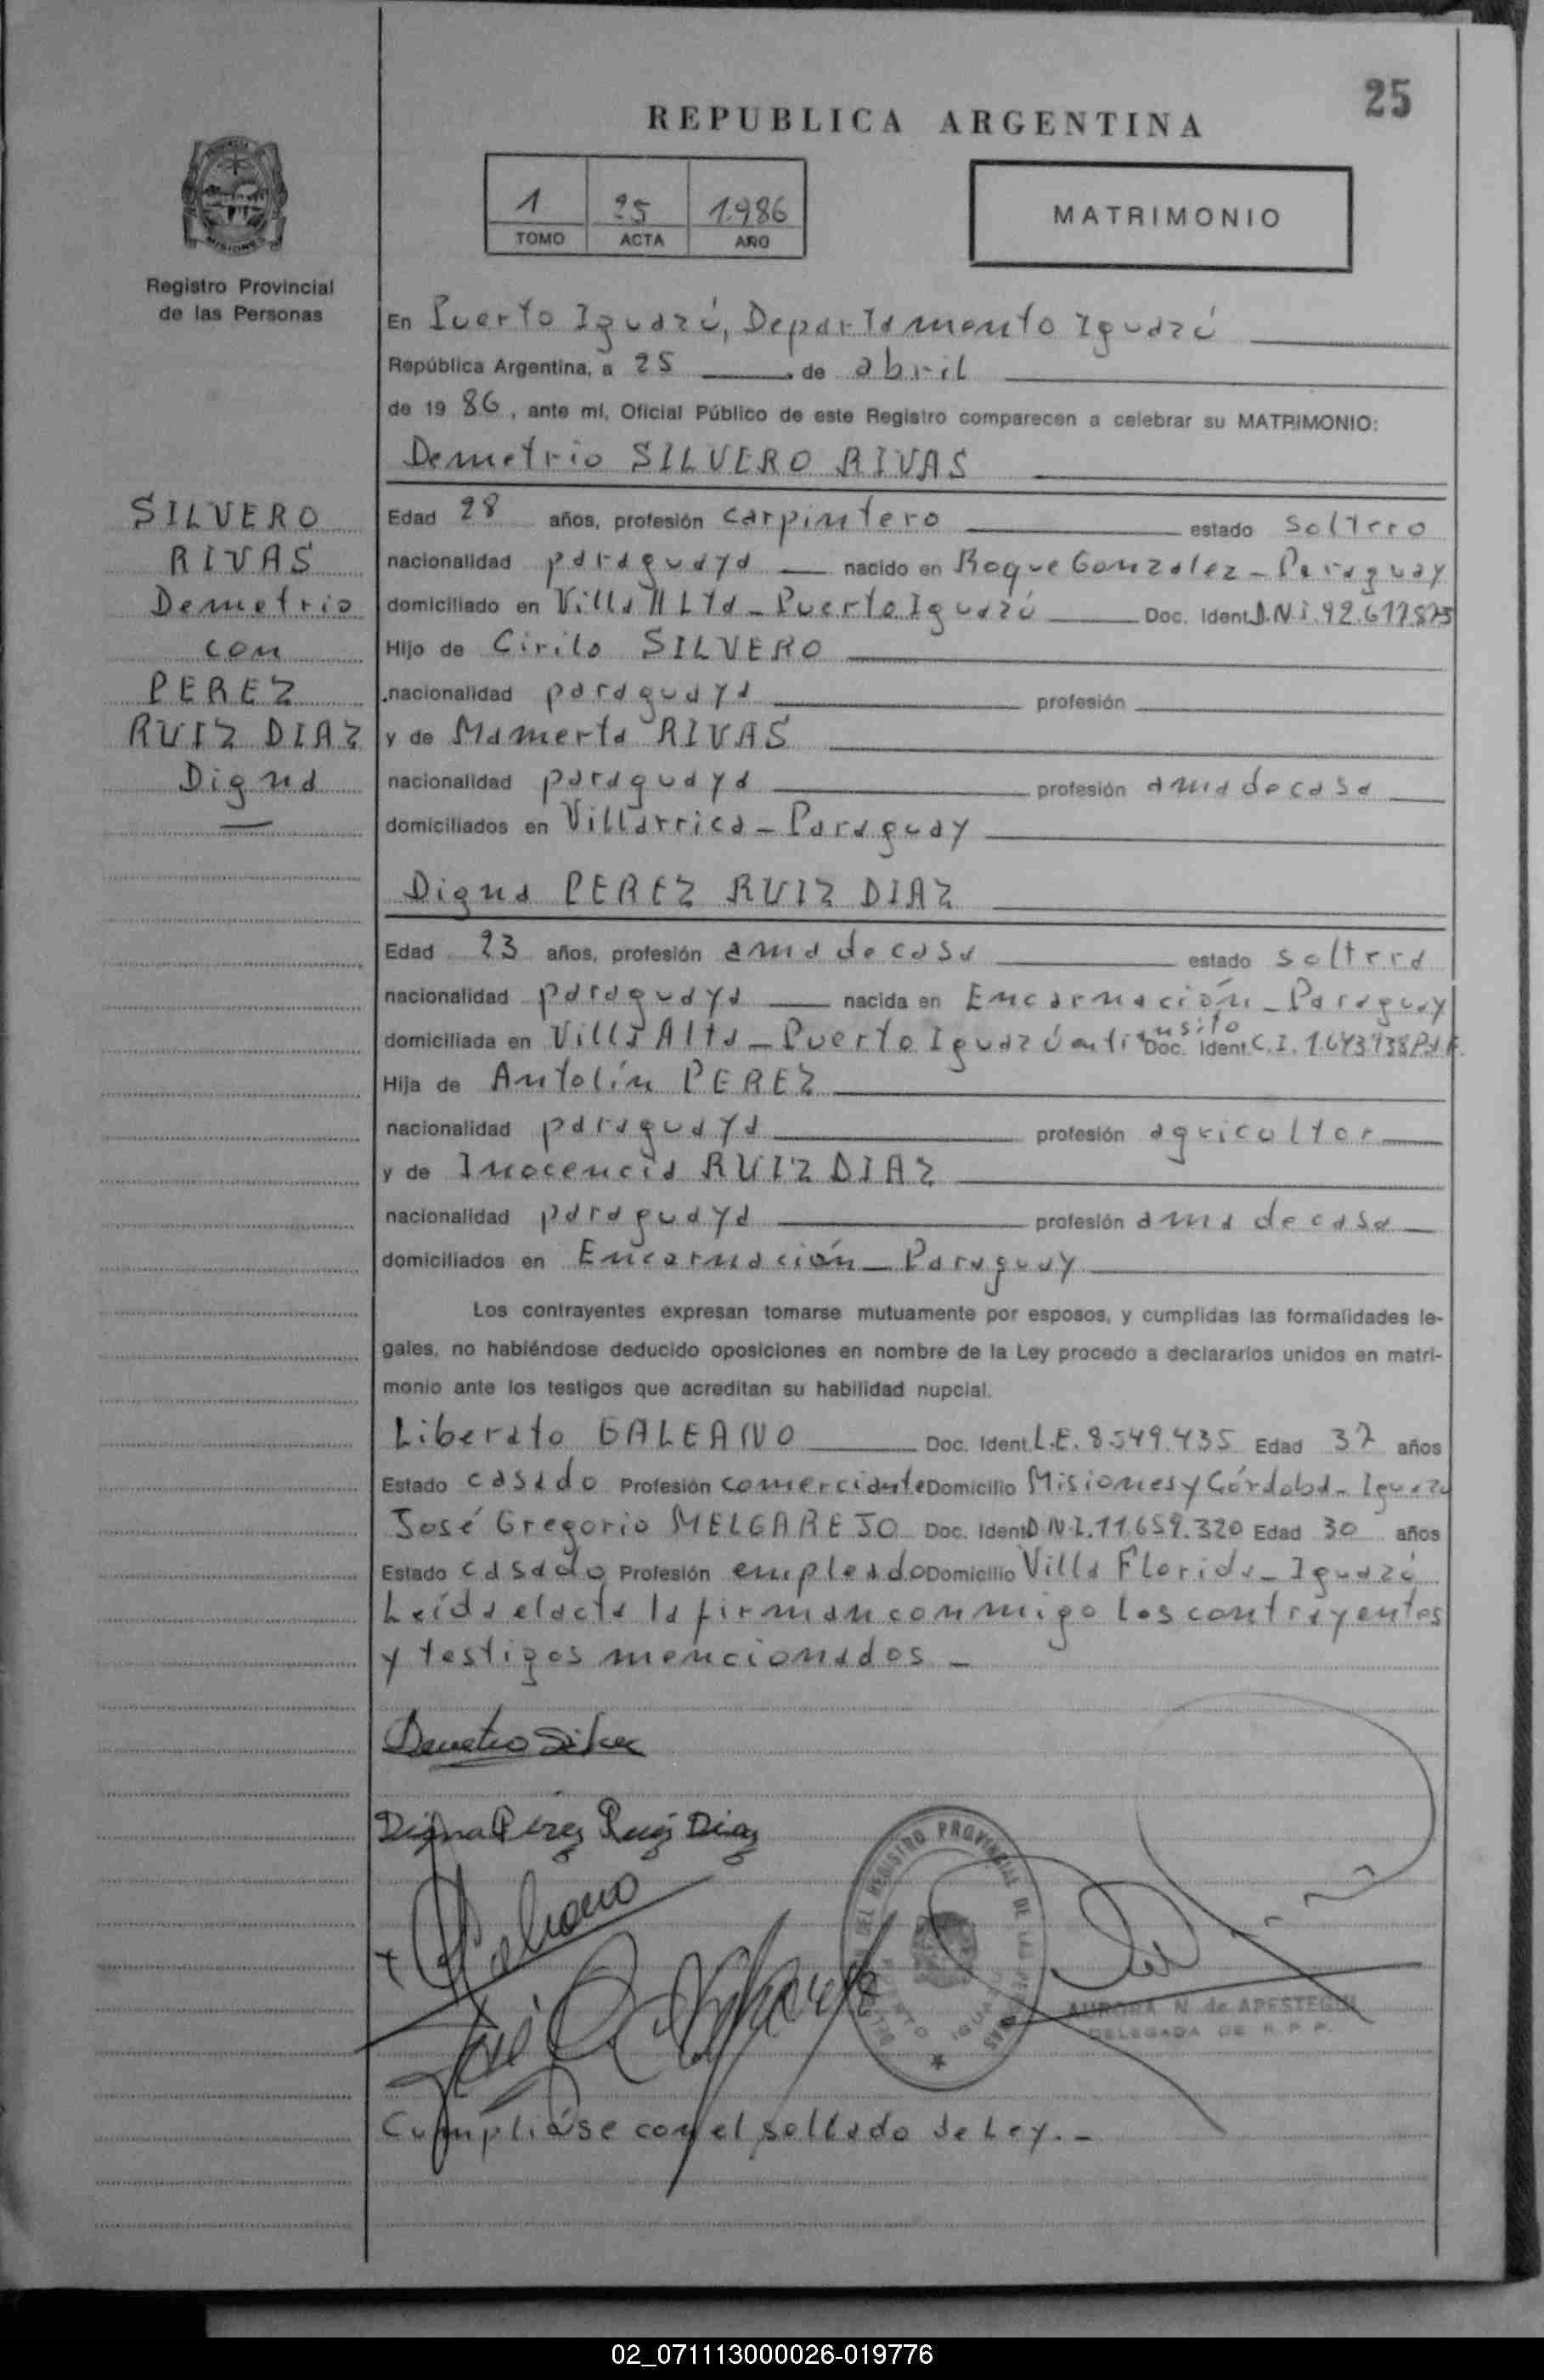 25
REPUBLICA ARGENTINA
1 25 1.986
TOMO ACTA AÑO
MATRIMONIO
Registro Provincial
de las Personas
En Puerto Iguazú, Departamento Iguazú
República Argentina, a 25 de abril
de 19 86, ante mí, Oficial Público de este Registro comparecen a celebrar su MATRIMONIO:
Demetrio SILVERO RIVAS
SILVERO
RIVAS
Demetrio
con
PEREZ
RUIZ DIAZ
Digna
Edad 28 años, profesión carpintero estado soltero
nacionalidad paraguaya nacido en Roque Gonzalez - Paraguay
domiciliado en Villa Alta - Puerto Iguazú Doc. Ident. D.N.I. 92.617.875
Hijo de Cirilo SILVERO
nacionalidad paraguaya profesión
y de Mamerta RIVAS
nacionalidad paraguaya profesión ama de casa
domiciliados en Villarrica - Paraguay
Digna PEREZ RUIZ DIAZ
Edad 23 años, profesión ama de casa estado soltera
nacionalidad paraguaya nacida en Encarnación - Paraguay
domiciliada en Villa Alta - Puerto Iguazú Doc. Ident. C.I. 1.643.938
Hija de Antolín PEREZ
nacionalidad paraguaya profesión agricultor
y de Inocencia RUIZ DIAZ
nacionalidad paraguaya profesión ama de casa
domiciliados en Encarnación - Paraguay
Los contrayentes expresan tomarse mutuamente por esposos, y cumplidas las formalidades le-
gales, no habiéndose deducido oposiciones en nombre de la Ley procedo a declararlos unidos en matri-
monio ante los testigos que acreditan su habilidad nupcial.
Liberato GALEANO Doc. Ident. L.E. 8.549.435 Edad 37 años
Estado casado Profesión comerciante Domicilio Misiones y Córdoba - Iguazú
José Gregorio MELGAREJO Doc. Ident. D.N.I. 11.659.320 Edad 30 años
Estado casado Profesión empleado Domicilio Villa Florida - Iguazú
Leída el acta la firman conmigo los contrayentes
y testigos mencionados -
Demetrio Silver
Digna Pérez Ruiz Diaz
Galeano
José G Melgarejo
DEL REGISTRO PROVINCIAL DE LAS PERSONAS
PUERTO IGUAZU
AURORA N. de APESTEGUI
DELEGADA DE R. P. P.
Cumpliáse con el sellado de Ley. -
02_071113000026-019776